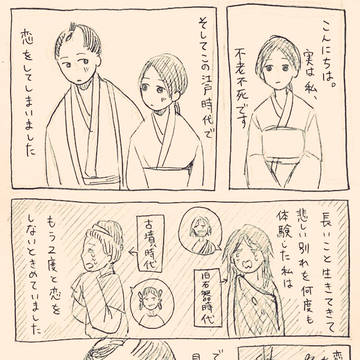 こんにちは。
実は私、
不老不死です
そしてこの江戸時代で
恋をしてしまいました
長いこと生きてきて
悲しい別れを何度も
体験した私は
旧石器時代
古墳時代
もう2度と恋を
しないときめていました
恋
で